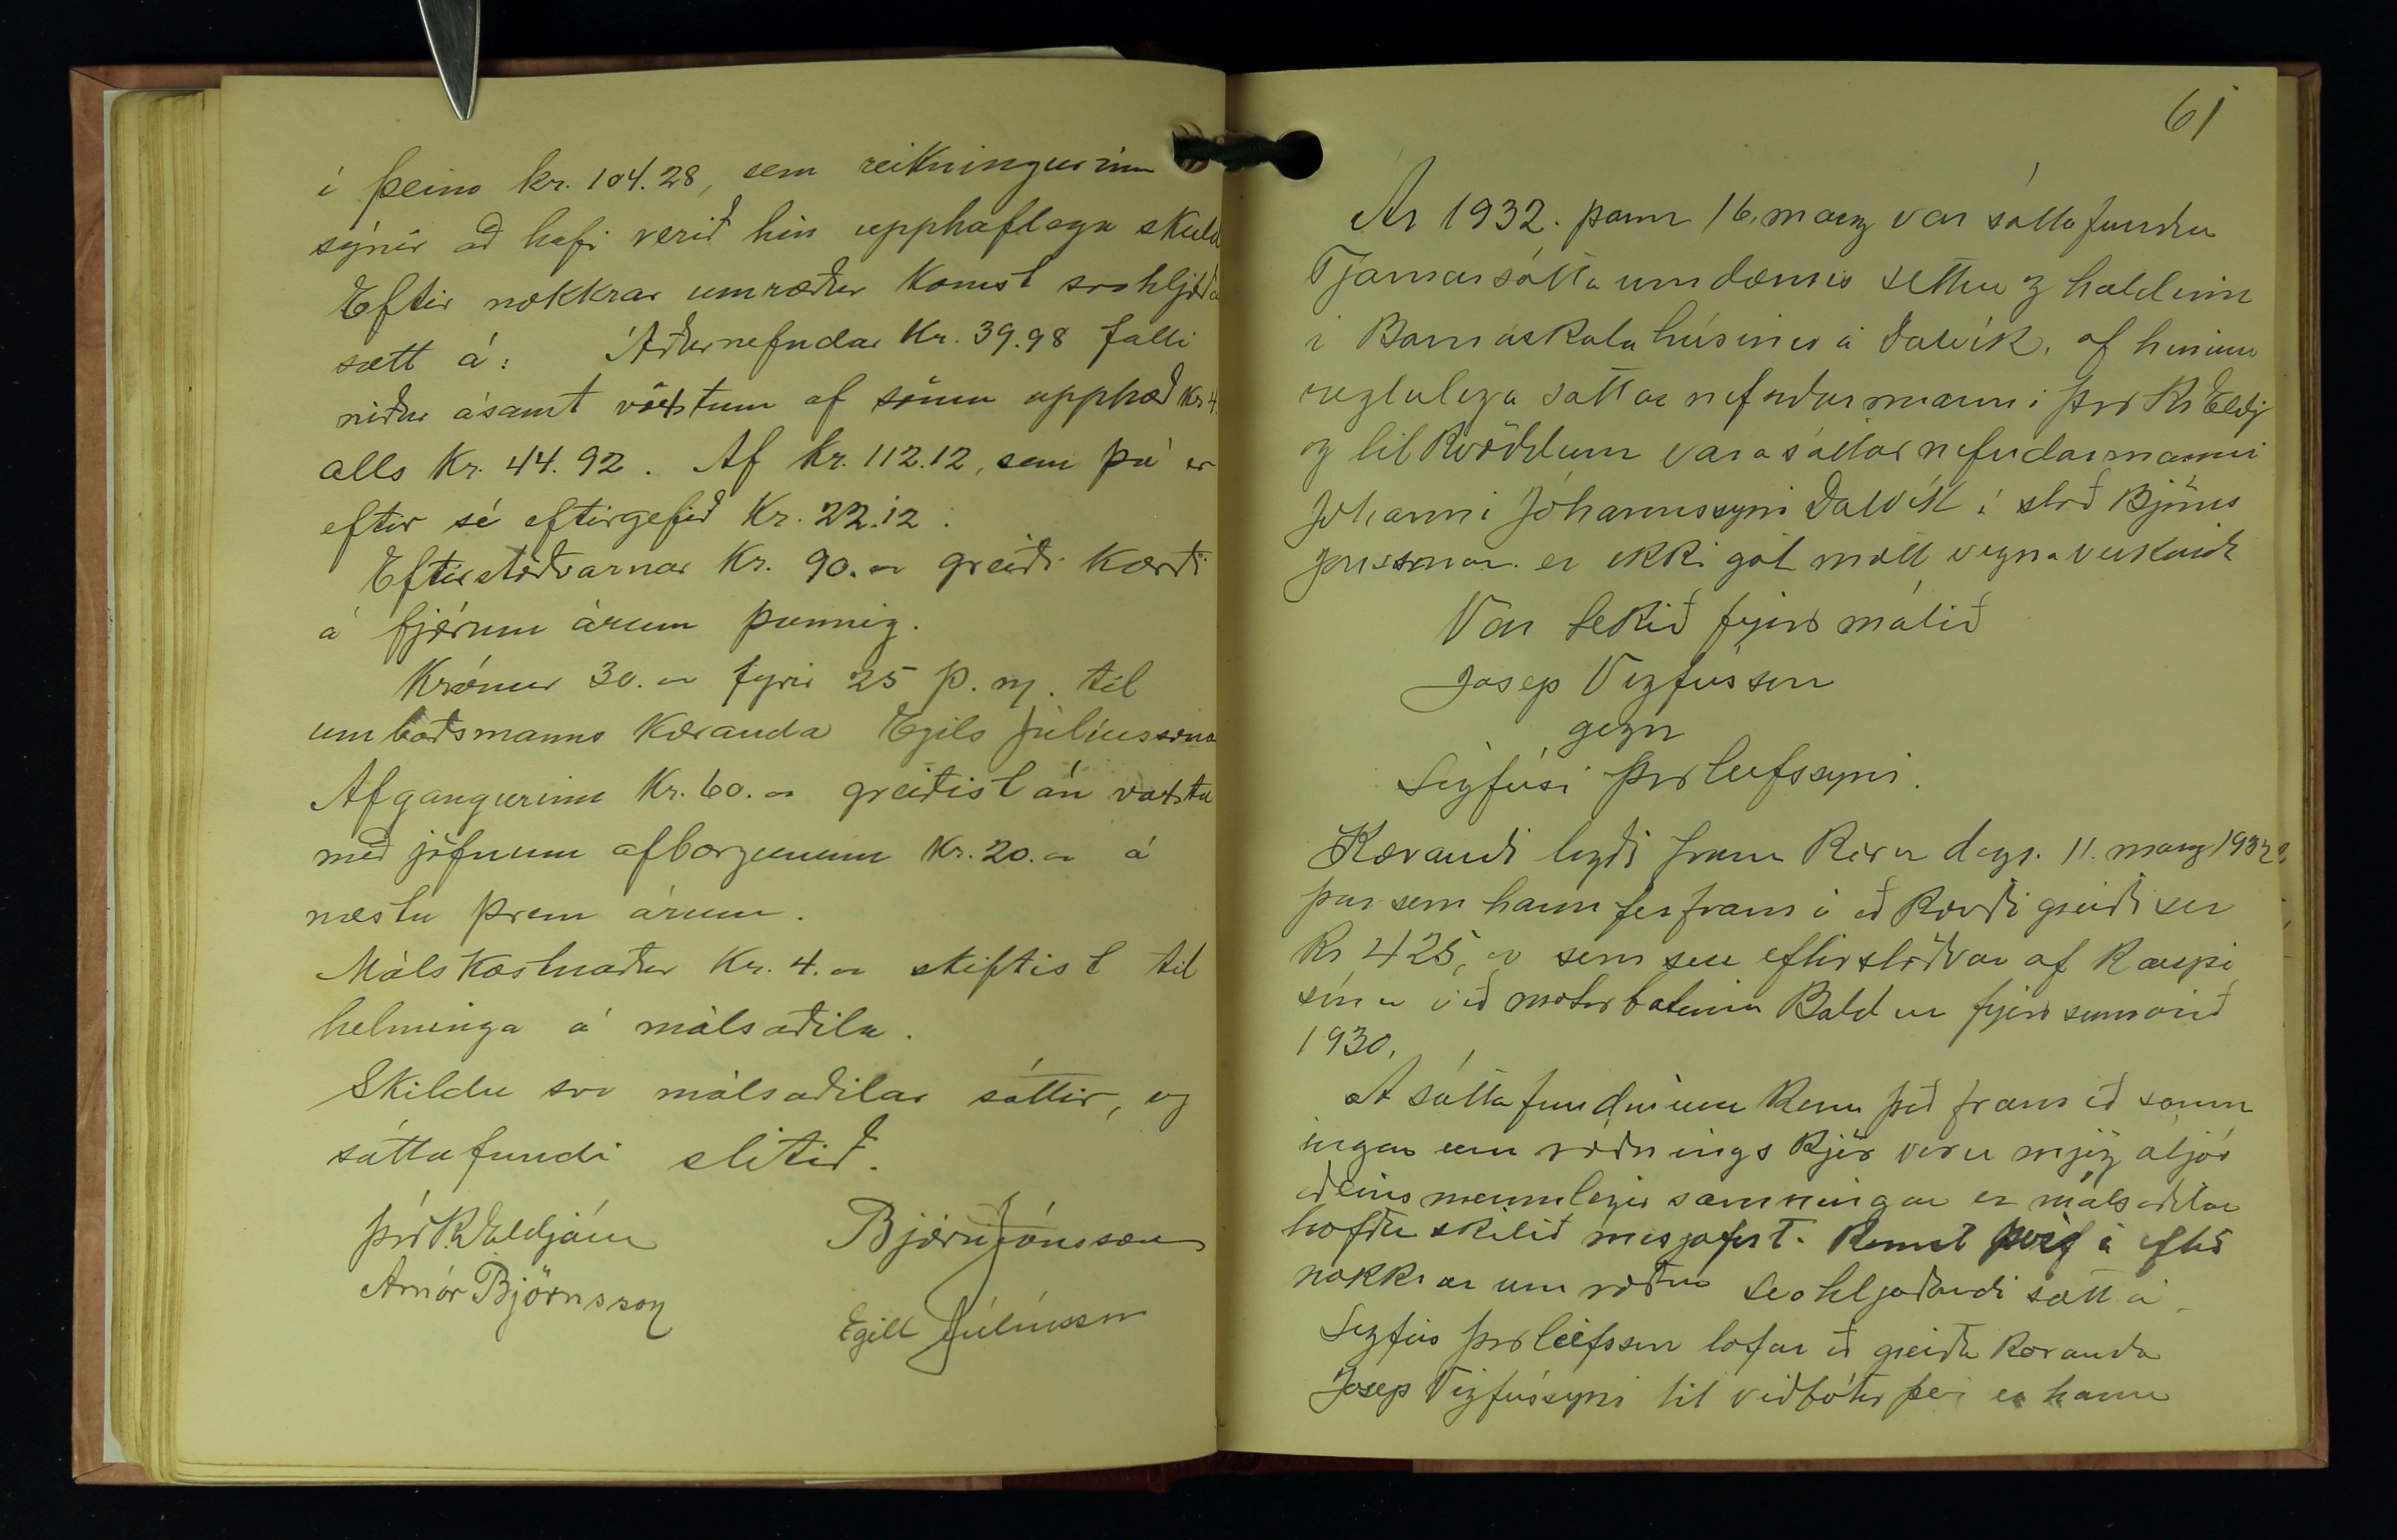 í þeim kr. 104.28, sem reikningurinn
sýnir að hafi verið hin upphaflega skuld
Eftir nokkrar umræður komst svohljóða
sætt á: Áðurnefndar Kr. 39.98 falli
niður ásamt vöxtum af sömu upphæð Kr 4.
alls Kr. 44.92. Af kr. 112.12, sem þá er
eftir sé eftirgefið Kr. 22.12.
Eftirstöðvarnar Kr. 90.00 greiði kærði
á fjórum árum þannig.
Krónur 30.00 fyrir 25 þ. m. til
umboðsmanns kæranda Egils Júlíussonar
Afgangurinn Kr. 60.00 greiðist án vaxta
með jöfnum afborgunum Kr. 20.00 á
næstu þrem árum.
Málskostnaður Kr. 4.00 skiftist til
helminga á málsaðila.
Skildu svo málsaðilar sáttir, og
sáttafundi slitið.
Þór. Kr. Eldjárn
Björn Jónsson
Arnór Björnsson
Egill Júlíusson
61
Ár 1932. þann 16. marz var sáttafundur
Tjarnarsáttaumdæmis settur og haldinn
í Barnaskólahúsinu á Dalvík, af hinum
reglulega sáttanefndarmanni Þór Kr Eldj
og tilkvöddum varasáttanefndarmanni
Jóhanni Jóhannssyni Dalvík í stað Björns
Jónssonar er ekki gat mætt vegna veikinda
Var tekið fyrir málið
Josep Vigfússon
gegn
Sigfúsi Þorleifssyni.
Kærandi lagði fram kæru dags. 11. marz 1932,
þar sem hann fer fram á að kærði greiði sér
Kr 425,00 sem séu eftirstöðvar af kaupi
sínu við motorbátinn Baldur fyrir sumarið
1930.
Á sáttafundinum kom það fram að samn
ingar um ráðningskjör voru mjög óljós
aðeins munnlegir samningar er málsaðilar
hofðu skilið misjafnt. Komst á eftir
nokkrar umræður svohljóðandi sátt á
Sigfús Þorleifsson lofar að greiða kæranda
Josep Vigfússyni til viðbótar því er hann